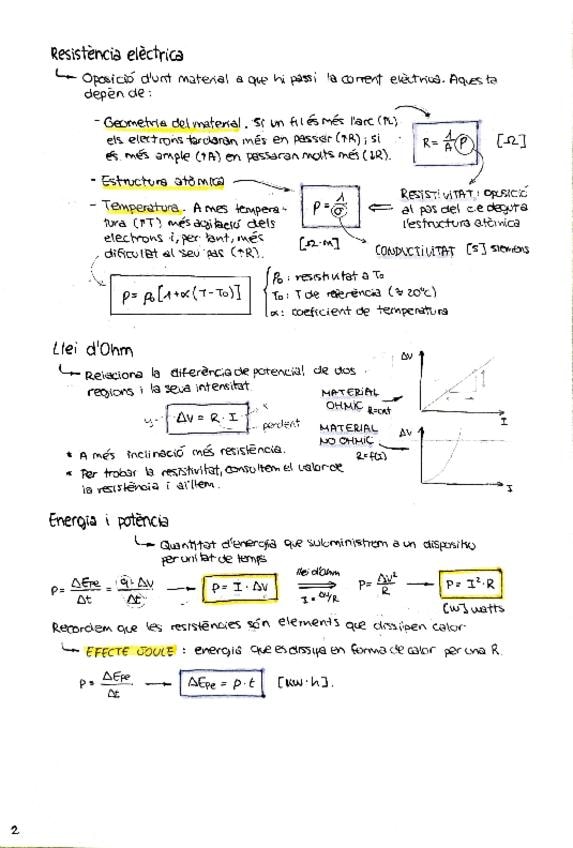 Resistència elèctrica
Oposició d'unt material a que hi passi la corrent elèctrica. Aquesta
depèn de:
- Geometria del material. Si un fil és més llarc (↑L)
els electrons tardaran més en passar (↑R); si
és més ample (↑A) en passaran molts més (↓R).
R = 1/A (ρ) [Ω]
- Estructura atòmica
- Temperatura. A mes tempera-
tura (↑T) més agitació dels
electrons i, per tant, més
dificultat al seu pas (↑R).
ρ = 1/σ
[Ω·m]
RESISTIVITAT: OPOSICIÓ
al pas del c.e deguta
l'estructura atòmica
CONDUCTIVITAT [S] siemens
ρ = ρ₀[1+α(T-T₀)]
ρ₀: resistivitat a T₀
T₀: T de referència (≈20ºC)
α: coeficient de temperatura
Llei d'Ohm
Relaciona la diferència de potencial de dos
regions i la seva intensitat.
y ΔV = R · I x
pendent
MATERIAL
OHMIC R=cnt
ΔV
I
MATERIAL
NO OHMIC
R=f(I)
ΔV
I
* A més inclinació més resistència.
* Per trobar la resistivitat, consultem el valor de
la resistència i aïllem.
Energia i potència
Quantitat d'energia que subministrem a un dispositiu
per unitat de temps
P = ΔEpe/Δt = q·ΔV/Δt → P = I · ΔV llei d'Ohm I = ΔV/R P = ΔV²/R → P = I²·R
[W] watts
Recordem que les resistències són elements que dissipen calor
EFECTE JOULE: energia que es dissipa en forma de calor per una R.
P = ΔEpe/Δt → ΔEpe = P·t [KW·h].
2